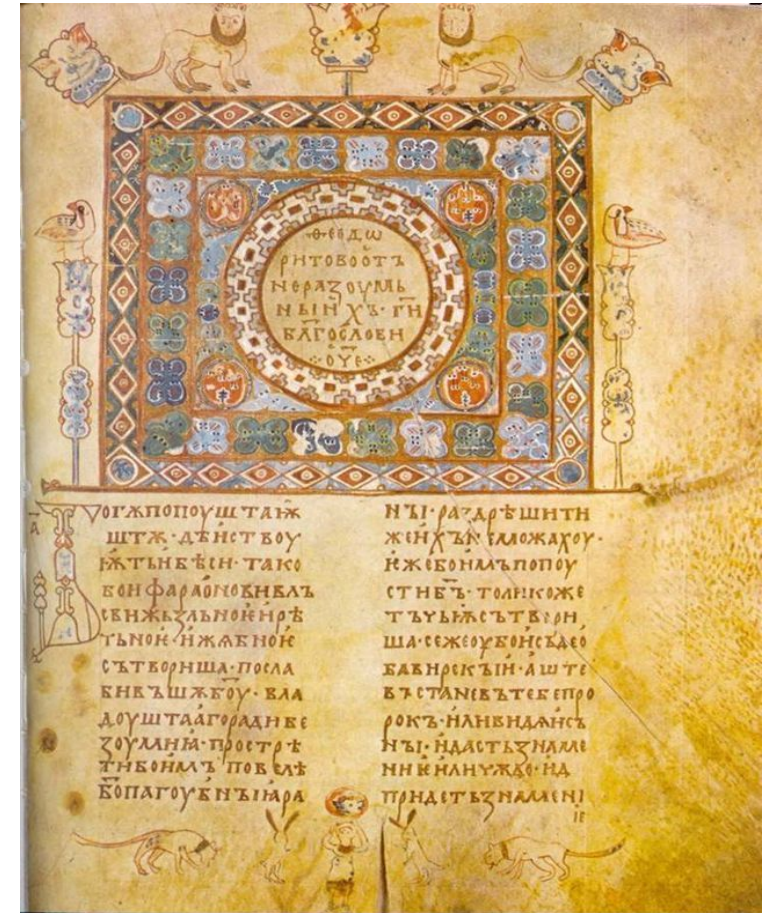 ѲЕѠДѠ
РИТОВООТЪ
НЕРАЗОУМЬ
НЫИХЪ· ГН
БЛГОСЛОВЕН
ОУЕ
БОГѪПОПОУШТАѬ
ШТѪ· ДѢИСТВОУ
ѬТЬИБѢСИ· ТАКО
БОИФАРАОНОВИВЛЪ
СВИЖЬЗЪЛЬНОѤИРѢ
ТЬНОѤ· ИЖѦБНОѤ
СЪТВОРИША· ПОСЛА
БИВЪШѪБОУ· ВЛА
ДОУШТААГОРАДИБЕ
ЗОУМИꙖ· ПРОСТРѢ
ТИБОИМЪ ПОВЕЛѢ
БОПАГОУБНЫИꙖРА
НЫ· РАЗДРѢШИТИ
ЖЕИХЪНЕМОЖАХОУ·
ѤЖЕБОИМЪПОПОУ
СТИБЪ· ТОЛИКОЖЕ
СЪТВОРИ
ША· СЕЖЕОУБО
АШТЕ
ВЪСТАНЕВЪТЕБЕПРО
РОКЪ· ИЛИВИДѦИСЪ
НЫ· ИДАСТЬЗНАМЕ
НИѤИЛИЧЮДО· ИД
ПРИДЕТЬЗНАМЕНІ
ІЕ